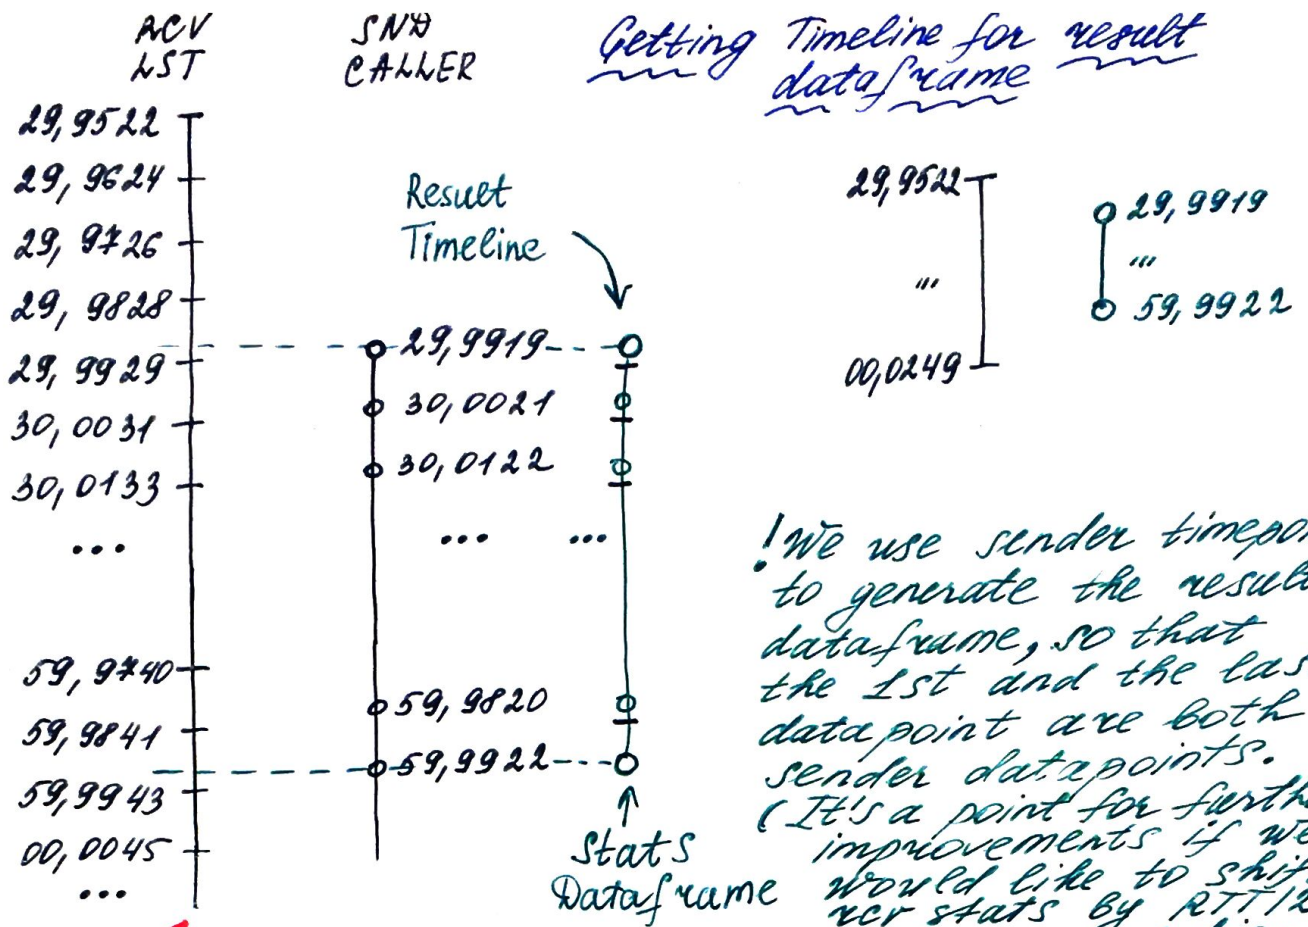 RCV
LST
SND
CALLER
Getting Timeline for result
dataframe
29,9522
29,9624
29,9726
29,9828
29,9929
30,0031
30,0133
...
59,9740
59,9841
59,9943
00,0045
...
29,9919
30,0021
30,0122
...
59,9820
59,9922
Result
Timeline
...
Stats
Dataframe
29,9522
"'
00,0249
29,9919
"'
59,9922
!We use sender
to generate the
dataframe, so that
the 1st and the
datapoint are both
sender datapoints.
(It's a point for
improvements if we
would like to
rcv stats by RTT/2